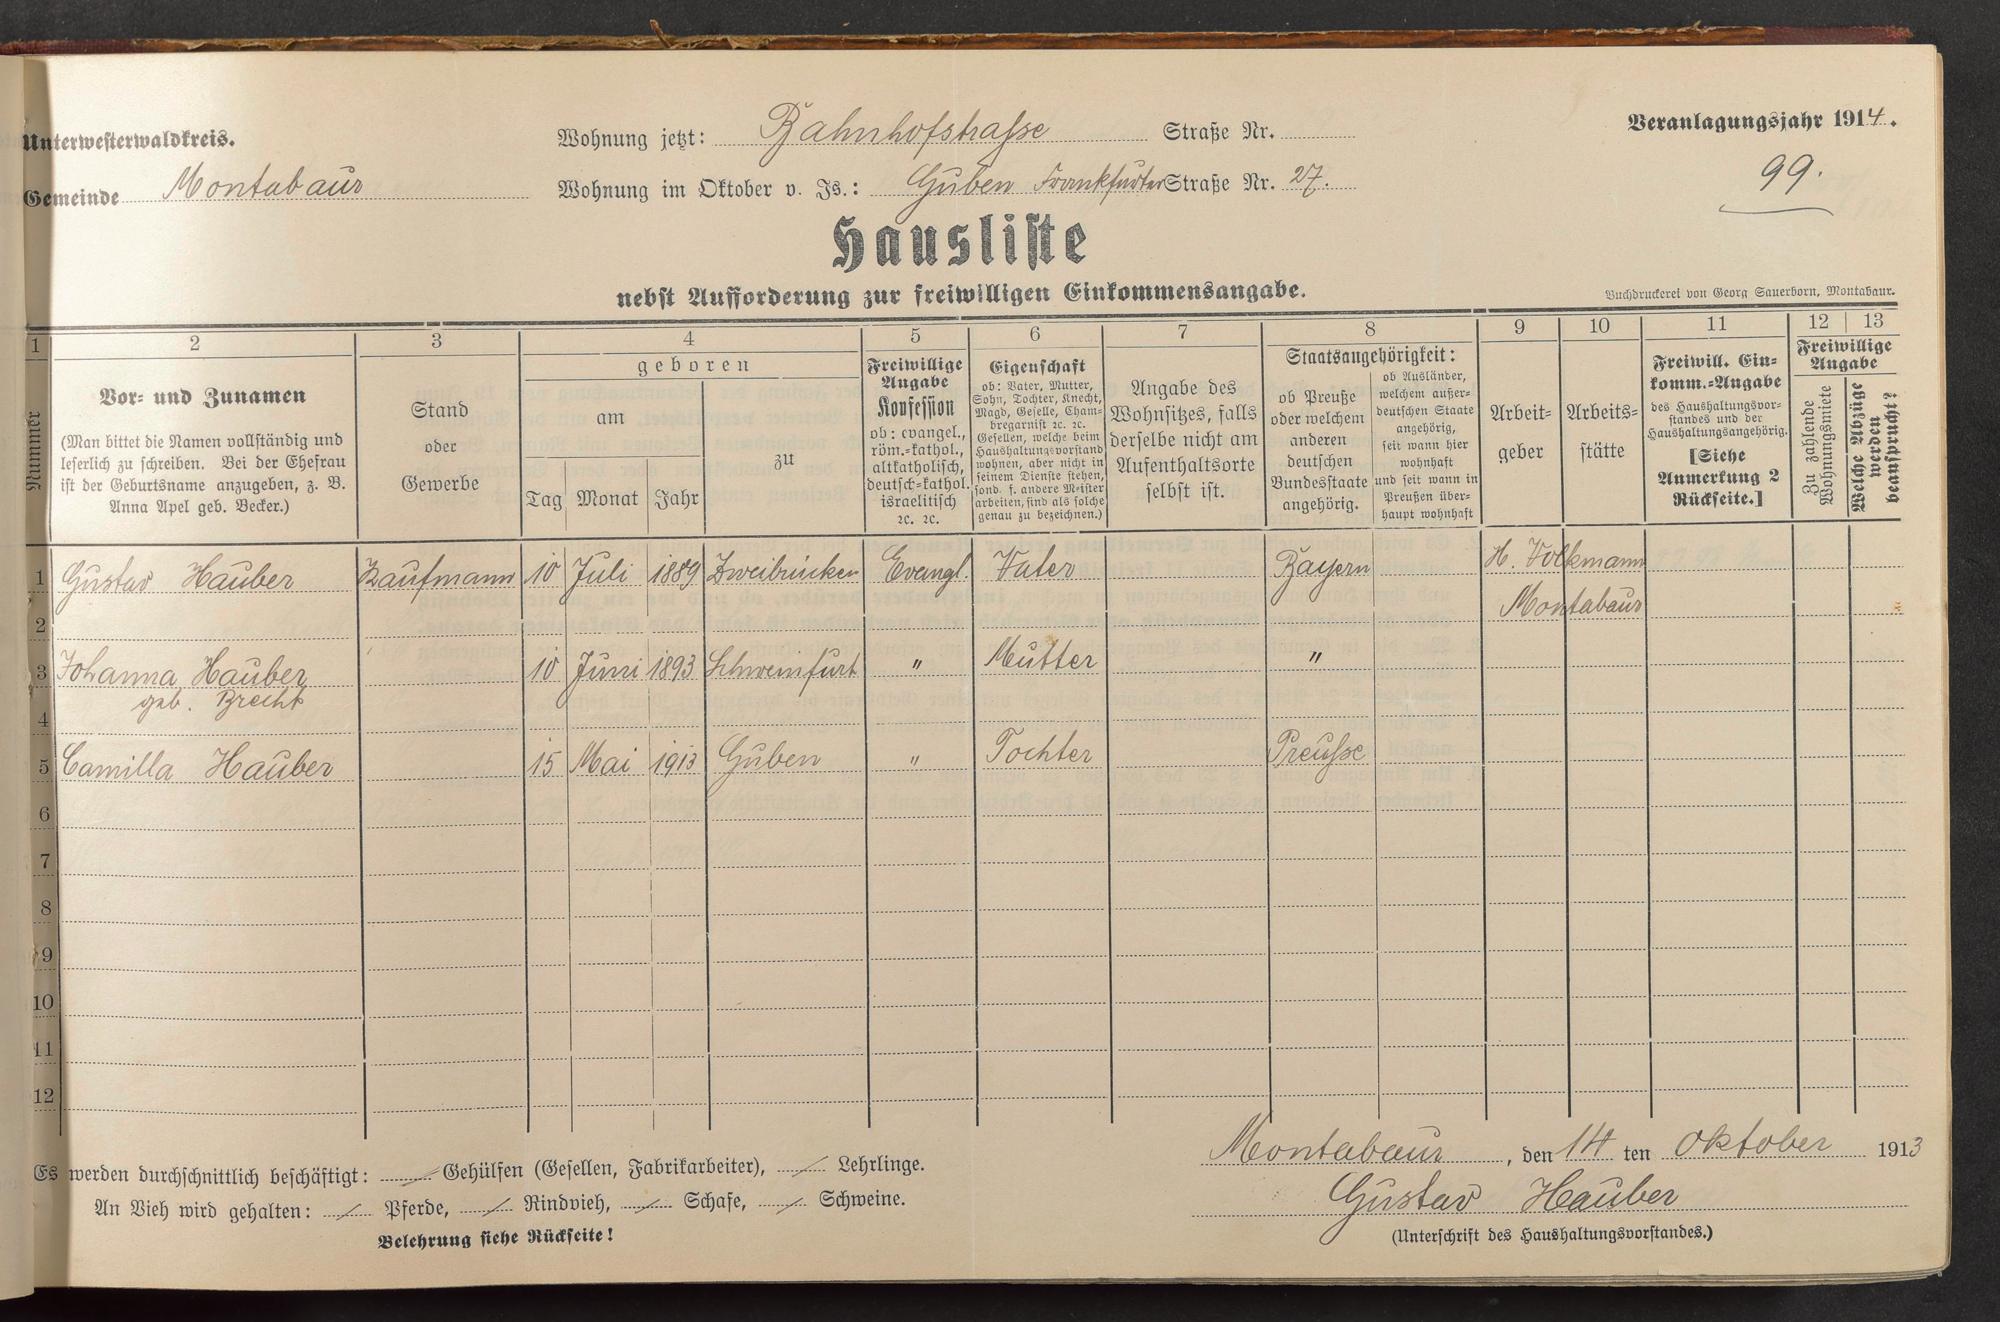 Unterwesterwaldkreis.
Gemeinde Montabaur
Wohnung jetzt: Bahnhofstrasse Straße Nr.
Wohnung im Oktober v. Js.: Guben Frankfurter Straße Nr. 27.
Veranlagungsjahr 1914.
99.
Hausliste
nebst Aufforderung zur freiwilligen Einkommensangabe.
Buchdruckerei von Georg Sauerborn, Montabaur.
1 2 3 4 5 6 7 8 9 10 11 12 13
Nummer
Vor- und Zunamen
(Man bittet die Namen vollständig und
leserlich zu schreiben. Bei der Ehefrau
ist der Geburtsname anzugeben, z. B.
Anna Apel geb. Becker.)
Stand
oder
Gewerbe
geboren
am
Tag Monat Jahr
zu
Freiwillige
Angabe
Konfession
ob: evangel.,
röm.-kathol.,
altkatholisch,
deutsch-kathol.
israelitisch
ꝛc. ꝛc.
Eigenschaft
ob: Vater, Mutter,
Sohn, Tochter, Knecht,
Magd, Geselle, Cham-
bregarnist ꝛc. ꝛc.
Gesellen, welche beim
Haushaltungsvorstand
wohnen, aber nicht in
seinem Dienste stehen,
sond. f. andere Meister
arbeiten, sind als solche
genau zu bezeichnen.)
Angabe des
Wohnsitzes, falls
derselbe nicht am
Aufenthaltsorte
selbst ist.
Staatsangehörigkeit:
ob Preuße
oder welchem
anderen
deutschen
Bundesstaate
angehörig.
ob Ausländer,
welchem außer-
deutschen Staate
angehörig,
seit wann hier
wohnhaft
und seit wann in
Preußen über-
haupt wohnhaft
Arbeit-
geber
Arbeits-
stätte
Freiwill. Ein-
komm.-Angabe
des Haushaltungsvor-
standes und der
Haushaltungsangehörig.
[Siehe
Anmerkung 2
Rückseite.]
Freiwillige
Angabe
Zu zahlende
Wohnungsmiete
Welche Abzüge
werden
beansprucht?
1 Gustav Hauber Kaufmann 10 Juli 1889 Zweibrücken Evangl. Vater Bayern H. Volkmann
2 Montabaur
3 Johanna Hauber 10 Juni 1893 Schweinfurt " Mutter "
geb. Brecht
4
5 Camilla Hauber 15 Mai 1913 Guben " Tochter Preusse
6
7
8
9
10
11
12
Es werden durchschnittlich beschäftigt: / Gehülfen (Gesellen, Fabrikarbeiter), / Lehrlinge.
An Vieh wird gehalten: / Pferde, / Rindvieh, / Schafe, / Schweine.
Belehrung siehe Rückseite!
Montabaur, den 14 ten Oktober 1913
Gustav Hauber
(Unterschrift des Haushaltungsvorstandes.)